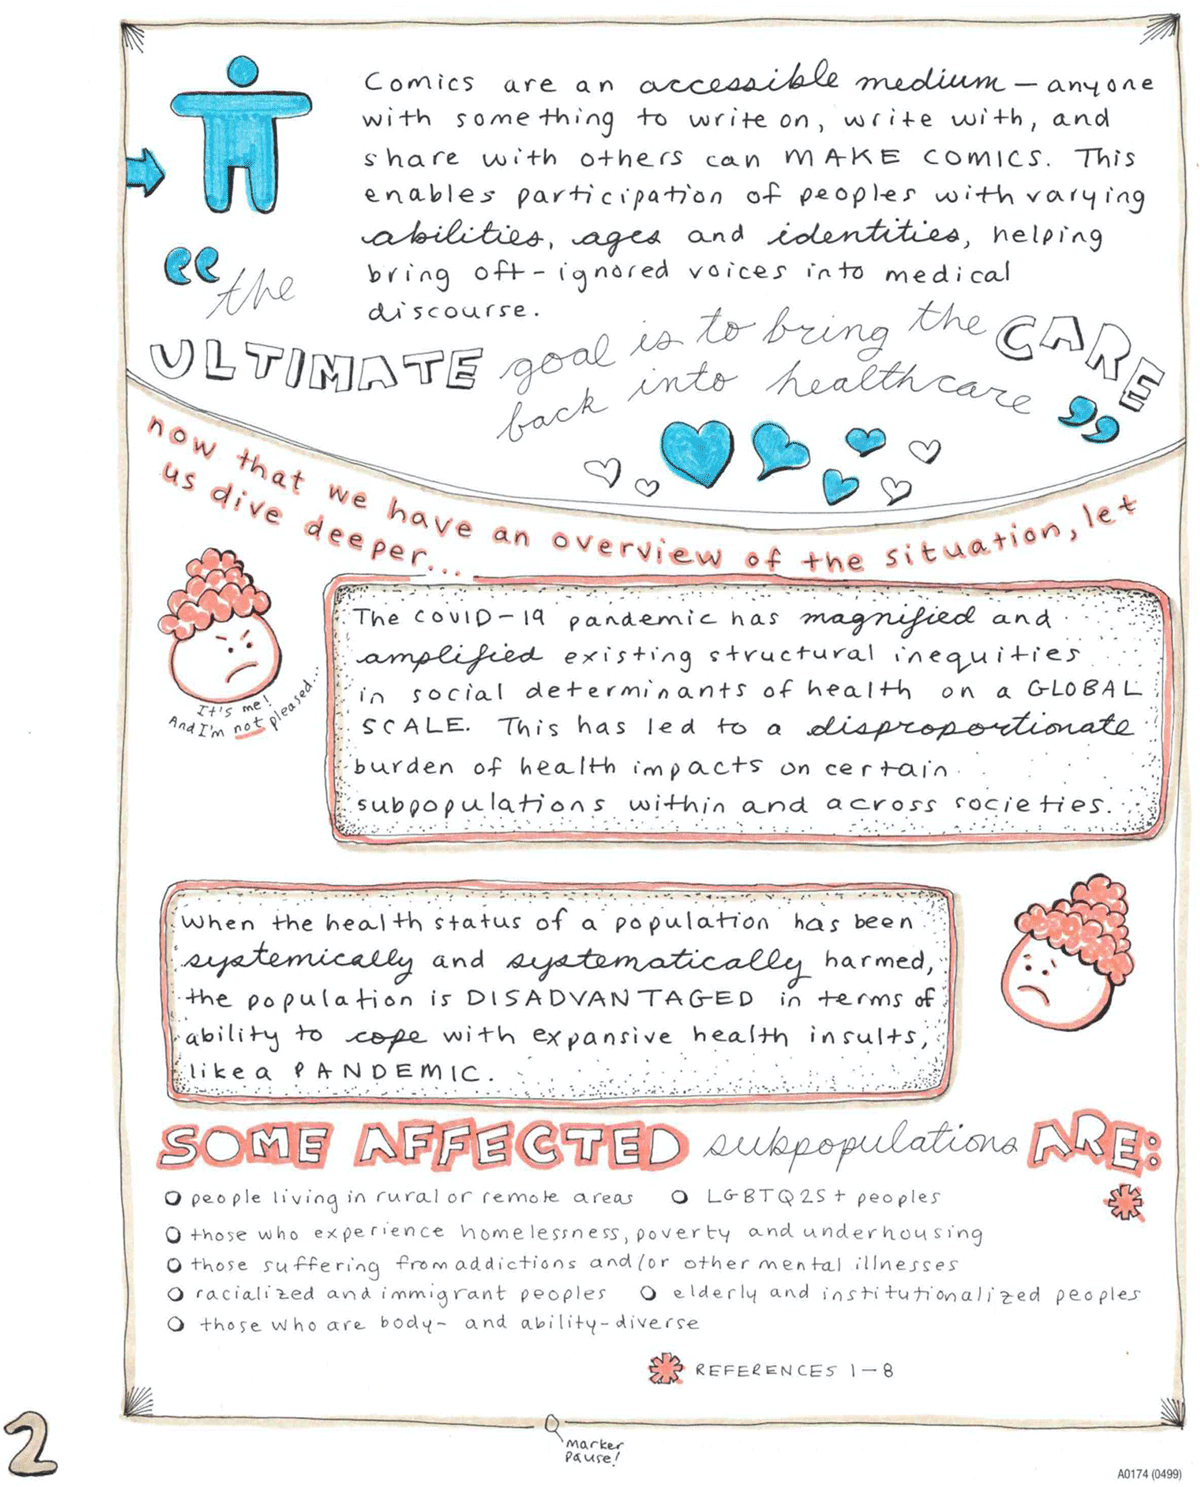 Comics are an accessible medium — anyone
with something to write on, write with, and
share with others can MAKE COMICS. This
enables participation of peoples with varying
abilities, ages and identities, helping
bring oft-ignored voices into medical
discourse.
“the
ULTIMATE goal is to bring the CARE
back into healthcare”
now that we have an overview of the situation, let
us dive deeper...
The COVID-19 pandemic has magnified and
amplified existing structural inequities
in social determinants of health on a GLOBAL
SCALE. This has led to a disproportionate
burden of health impacts on certain
subpopulations within and across societies.
It's me!
And I'm not pleased...
When the health status of a population has been
systemically and systematically harmed,
the population is DISADVANTAGED in terms of
ability to cope with expansive health insults,
like a PANDEMIC.
SOME AFFECTED subpopulations ARE:
people living in rural or remote areas LGBTQ2S+ peoples *
those who experience homelessness, poverty and underhousing
those suffering from addictions and/or other mental illnesses
racialized and immigrant peoples elderly and institutionalized peoples
those who are body- and ability-diverse
* REFERENCES 1-8
2
marker
pause!
A0174 (0499)